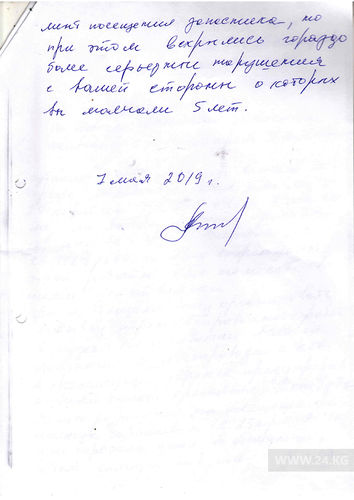 мент посещения запостика, но
при этом вскрылись гораздо
более серьезные нарушения
с вашей стороны о которых
вы молчали 5 лет.
7 мая 2019 г.
WWW.24.KG